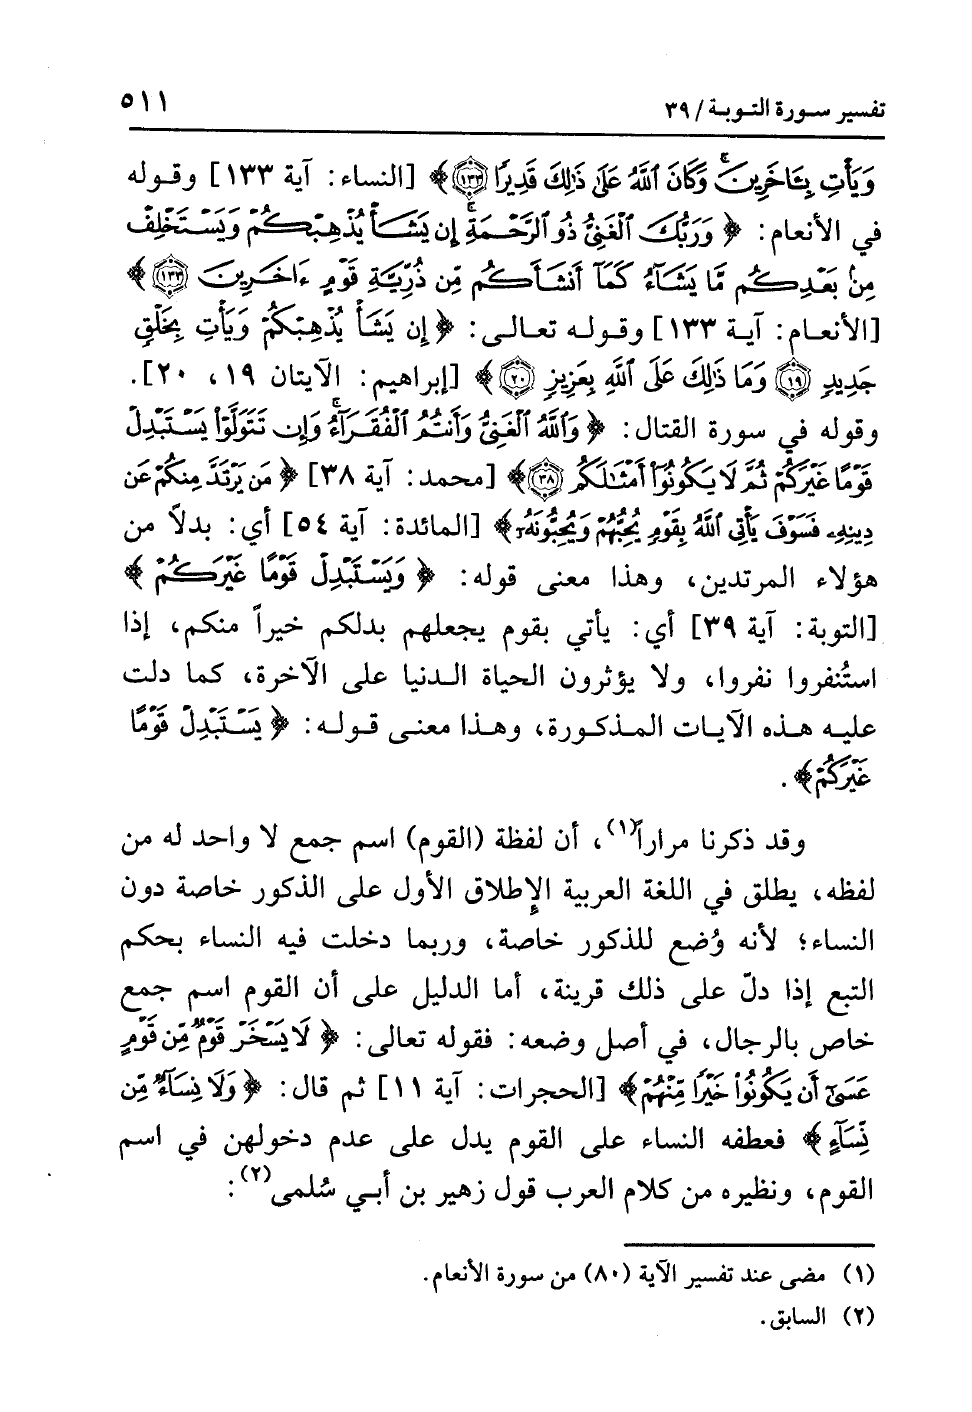 تفسير سورة التوبة / ٣٩ ٥١١
وَيَأْتِ بِـَٔاخَرِينَ ۚ وَكَانَ ٱللَّهُ عَلَىٰ ذَٰلِكَ قَدِيرًا ١٣٣﴾ [النساء: آية ١٣٣] وقوله
في الأنعام: ﴿وَرَبُّكَ ٱلْغَنِىُّ ذُو ٱلرَّحْمَةِ ۚ إِن يَشَأْ يُذْهِبْكُمْ وَيَسْتَخْلِفْ
مِنۢ بَعْدِكُم مَّا يَشَآءُ كَمَآ أَنشَأَكُم مِّن ذُرِّيَّةِ قَوْمٍ ءَاخَرِينَ ١٣٣﴾
[الأنعام: آية ١٣٣] وقوله تعالى: ﴿إِن يَشَأْ يُذْهِبْكُمْ وَيَأْتِ بِخَلْقٍ
جَدِيدٍ ١٩ وَمَا ذَٰلِكَ عَلَى ٱللَّهِ بِعَزِيزٍ ٢٠﴾ [إبراهيم: الآيتان ١٩، ٢٠].
وقوله في سورة القتال: ﴿وَٱللَّهُ ٱلْغَنِىُّ وَأَنتُمُ ٱلْفُقَرَآءُ ۚ وَإِن تَتَوَلَّوْا۟ يَسْتَبْدِلْ
قَوْمًا غَيْرَكُمْ ثُمَّ لَا يَكُونُوٓا۟ أَمْثَٰلَكُم ٣٨﴾ [محمد: آية ٣٨] ﴿مَن يَرْتَدَّ مِنكُمْ عَن
دِينِهِۦ فَسَوْفَ يَأْتِى ٱللَّهُ بِقَوْمٍ يُحِبُّهُمْ وَيُحِبُّونَهُۥٓ﴾ [المائدة: آية ٥٤] أي: بدلاً من
هؤلاء المرتدين، وهذا معنى قوله: ﴿وَيَسْتَبْدِلْ قَوْمًا غَيْرَكُمْ﴾
[التوبة: آية ٣٩] أي: يأتي بقوم يجعلهم بدلكم خيراً منكم، إذا
استُنفروا نفروا، ولا يؤثرون الحياة الدنيا على الآخرة، كما دلت
عليه هذه الآيات المذكورة، وهذا معنى قوله: ﴿يَسْتَبْدِلْ قَوْمًا
غَيْرَكُمْ﴾.
وقد ذكرنا مراراً(١)، أن لفظة (القوم) اسم جمع لا واحد له من
لفظه، يطلق في اللغة العربية الإِطلاق الأول على الذكور خاصة دون
النساء؛ لأنه وُضع للذكور خاصة، وربما دخلت فيه النساء بحكم
التبع إذا دلّ على ذلك قرينة، أما الدليل على أن القوم اسم جمع
خاص بالرجال، في أصل وضعه: فقوله تعالى: ﴿لَا يَسْخَرْ قَوْمٌ مِّن قَوْمٍ
عَسَىٰٓ أَن يَكُونُوا۟ خَيْرًا مِّنْهُمْ﴾ [الحجرات: آية ١١] ثم قال: ﴿وَلَا نِسَآءٌ مِّن
نِّسَآءٍ﴾ فعطفه النساء على القوم يدل على عدم دخولهن في اسم
القوم، ونظيره من كلام العرب قول زهير بن أبي سُلمى(٢):
(١) مضى عند تفسير الآية (٨٠) من سورة الأنعام.
(٢) السابق.